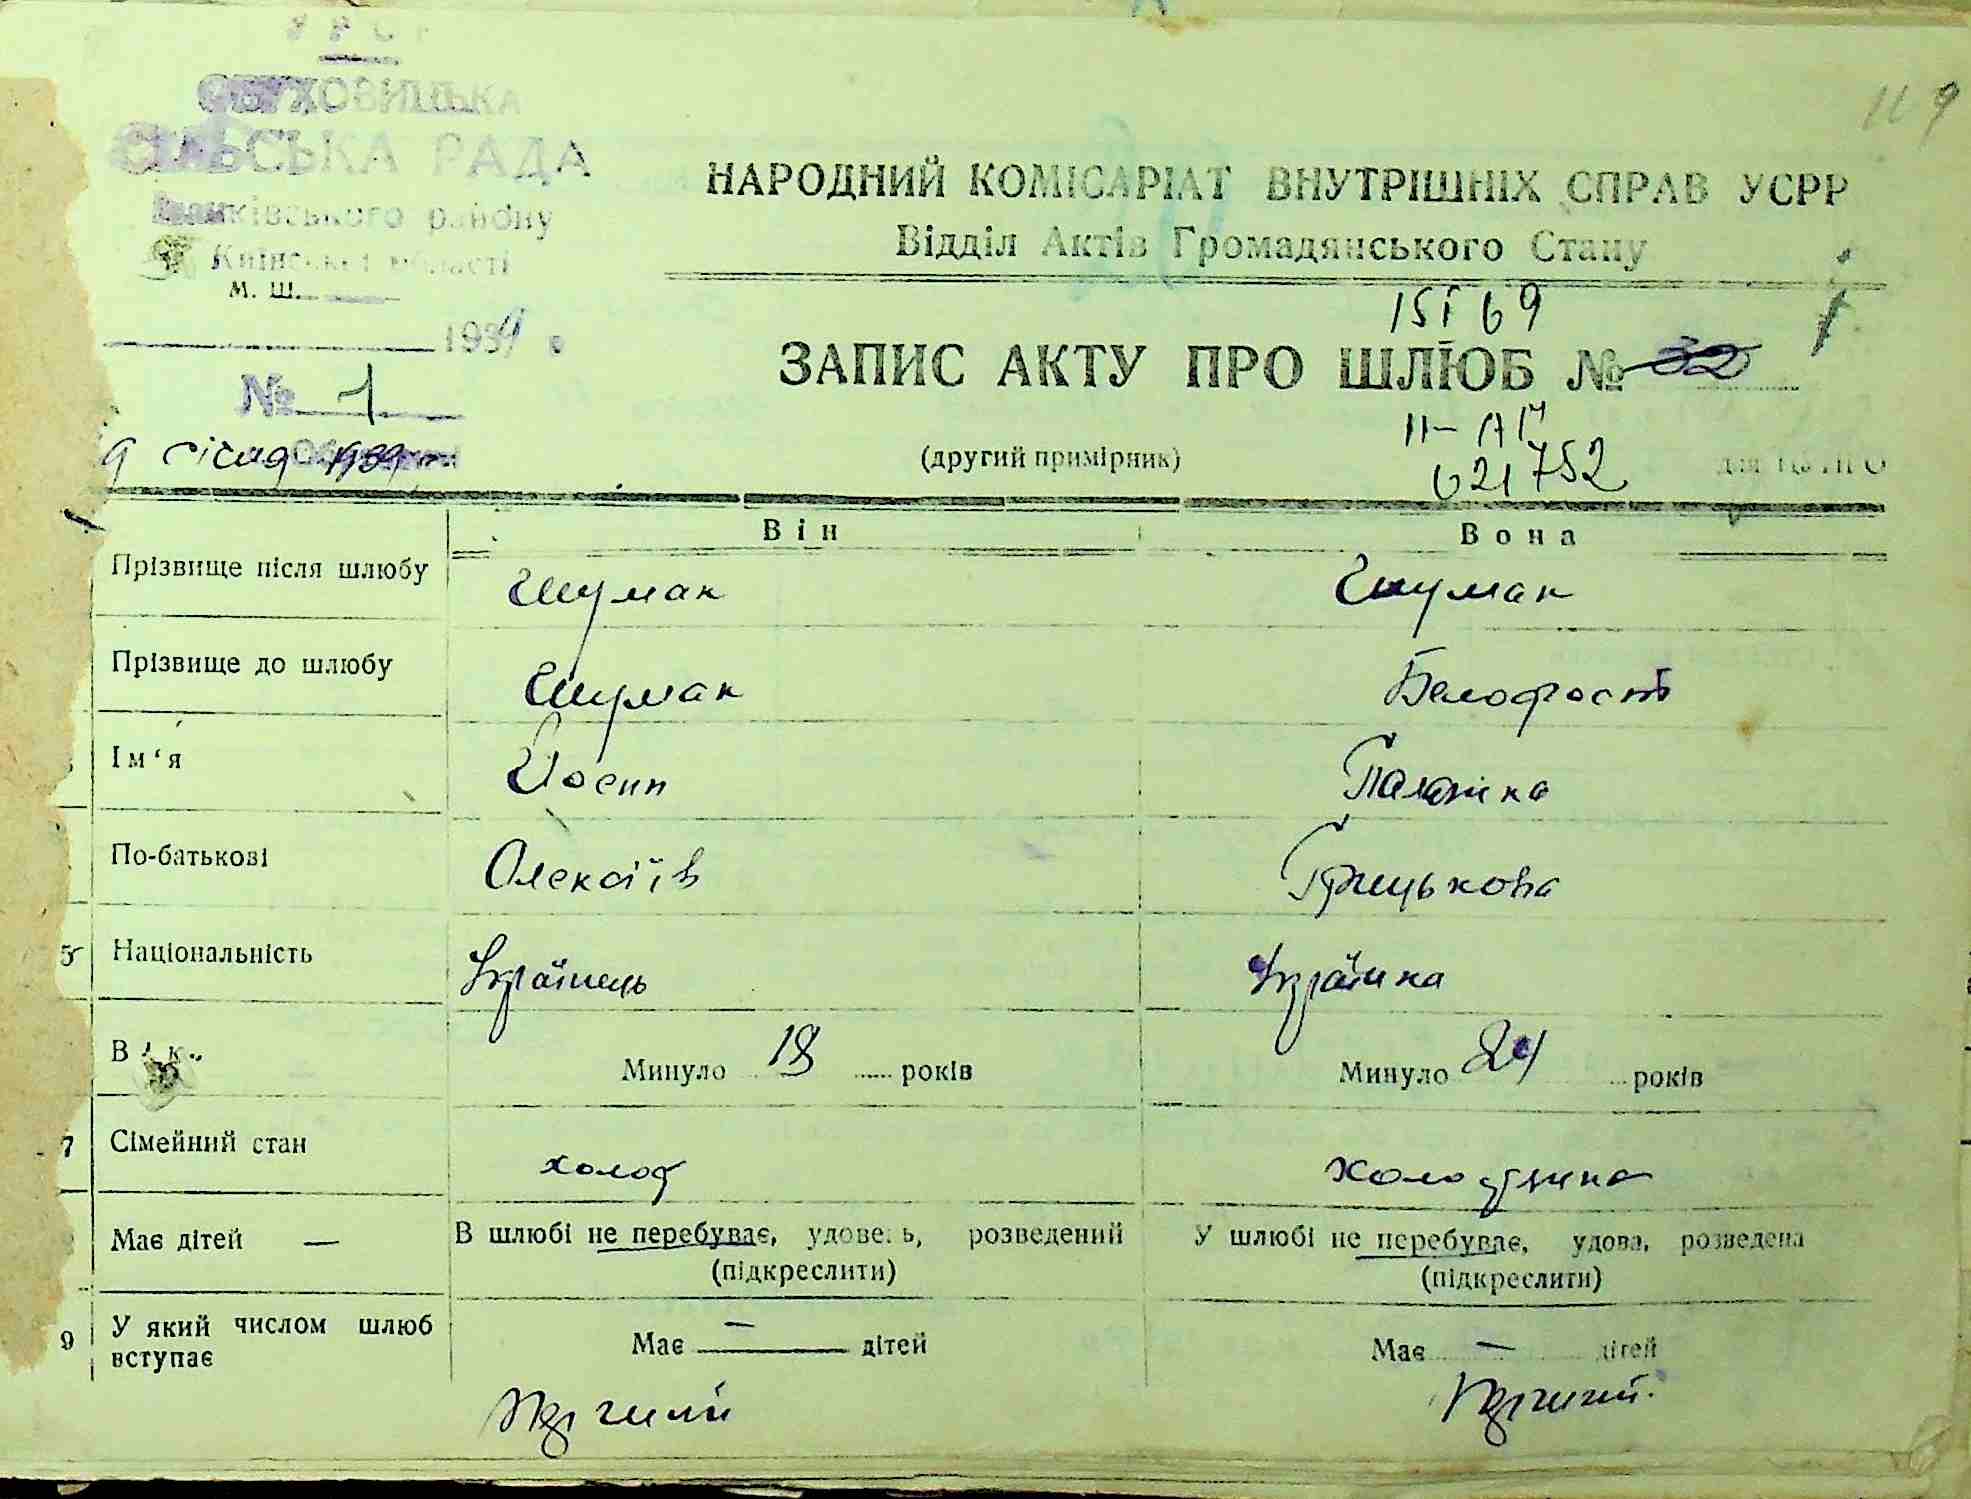 УРСР
ОБУХОВИЦЬКА
СІЛЬСЬКА РАДА
Іванківського району
Київської області
М. Ш.
1939
№ 1
9 січня 1939
119
НАРОДНИЙ КОМІСАРІАТ ВНУТРІШНІХ СПРАВ УСРР
Відділ Актів Громадянського Стану
ЗАПИС АКТУ ПРО ШЛЮБ № 32
II-АП
621752
(другий примірник)
Він Вона
Прізвище після шлюбу Шумак Шумак
Прізвище до шлюбу Шумак Белофост
Ім'я Йосип Палажка
По-батькові Олексіїв Грицькова
5 Національність Українець Українка
Вік Минуло 18 років Минуло 24 років
7 Сімейний стан холост
Має дітей — В шлюбі не перебуває, удовець, розведений У шлюбі не перебуває, удова, розведена
(підкреслити) (підкреслити)
9 У який числом шлюб вступає Має — дітей Має — дітей